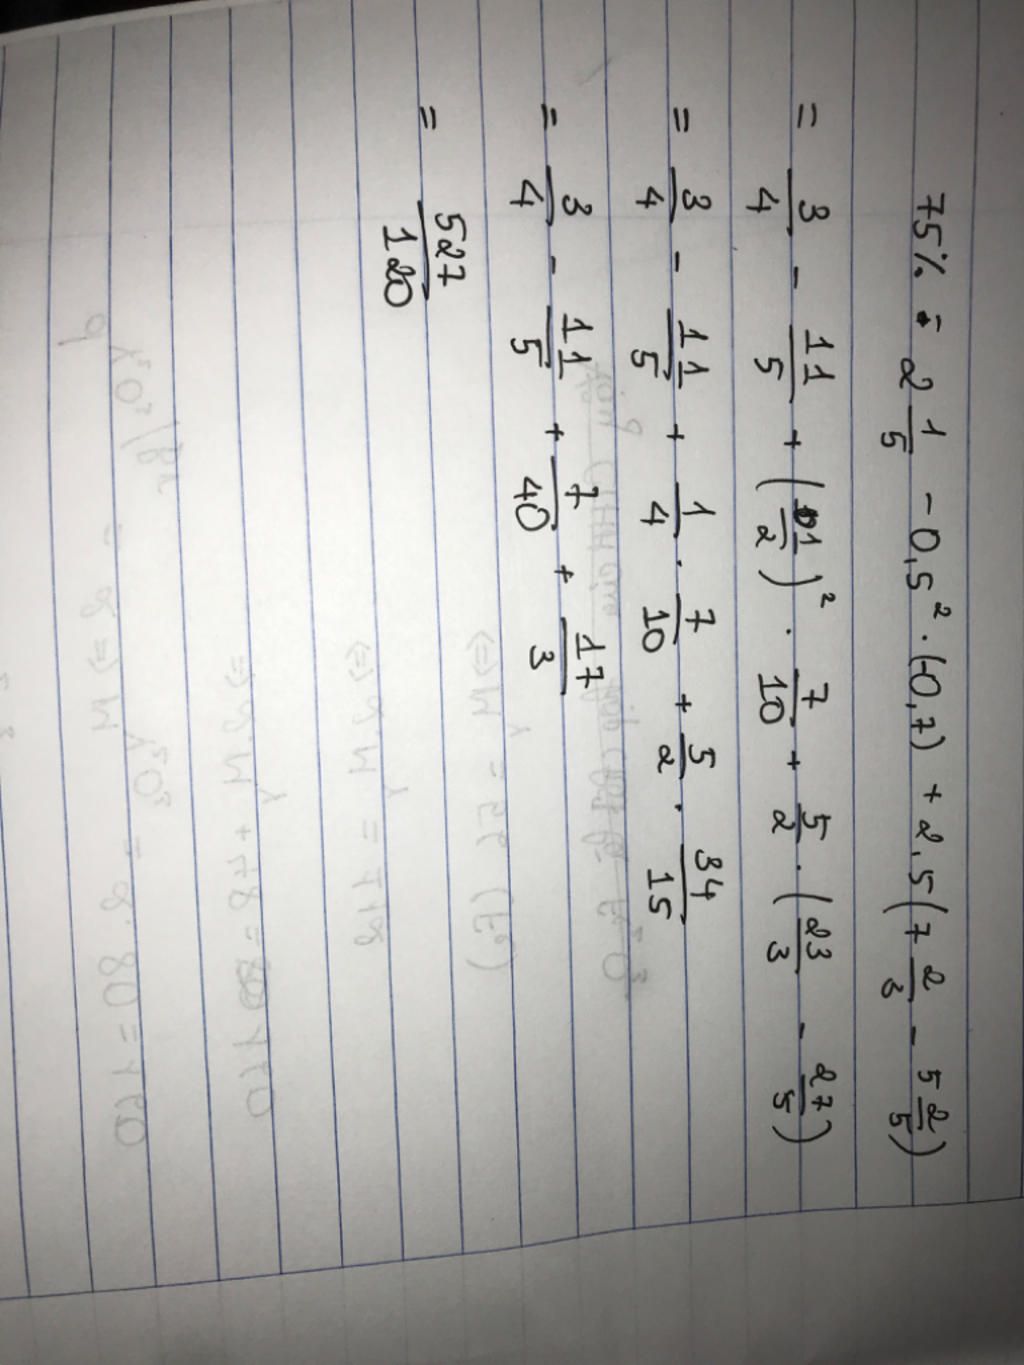 75% - 2 1/5 - 0,5² . (-0,7) + 2,5(7 2/3 - 5 2/5)
= 3/4 - 11/5 + (1/2)² . 7/10 + 5/2 . (23/3 - 27/5)
= 3/4 - 11/5 + 1/4 . 7/10 + 5/2 . 34/15
= 3/4 - 11/5 + 7/40 + 17/3
= 527/120